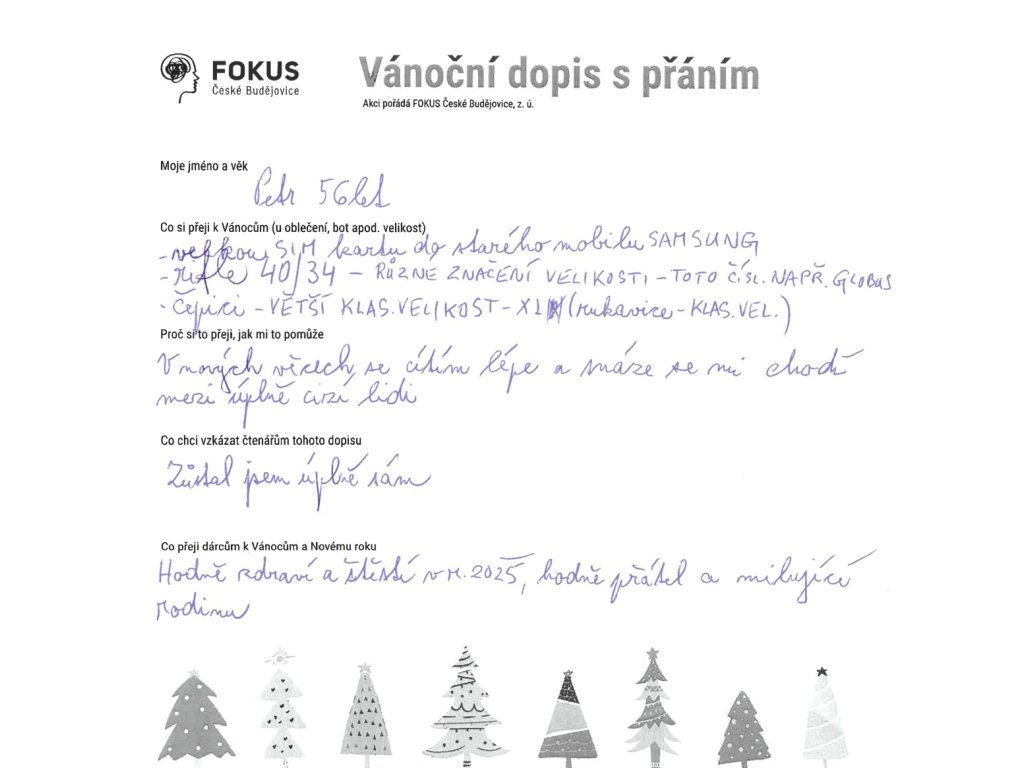 FOKUS
České Budějovice
Vánoční dopis s přáním
Akci pořádá FOKUS České Budějovice, z. ú.
Moje jméno a věk
Petr 56 let
Co si přeji k Vánocům (u oblečení, bot apod. velikost)
- velkou SIM kartu do starého mobilu SAMSUNG
- rifle 40/34 – RŮZNÉ ZNAČENÍ VELIKOSTI – TOTO ČÍSL. NAPŘ. GLOBUS
- čepici – VĚTŠÍ KLAS. VELIKOST – XL (rukavice – KLAS. VEL.)
Proč si to přeji, jak mi to pomůže
V nových věcech se cítím lépe a snáze se mi chodí
mezi úplně cizí lidi
Co chci vzkázat čtenářům tohoto dopisu
Zůstal jsem úplně sám
Co přeji dárcům k Vánocům a Novému roku
Hodně zdraví a štěstí v r. 2025, hodně přátel a milující
rodinu